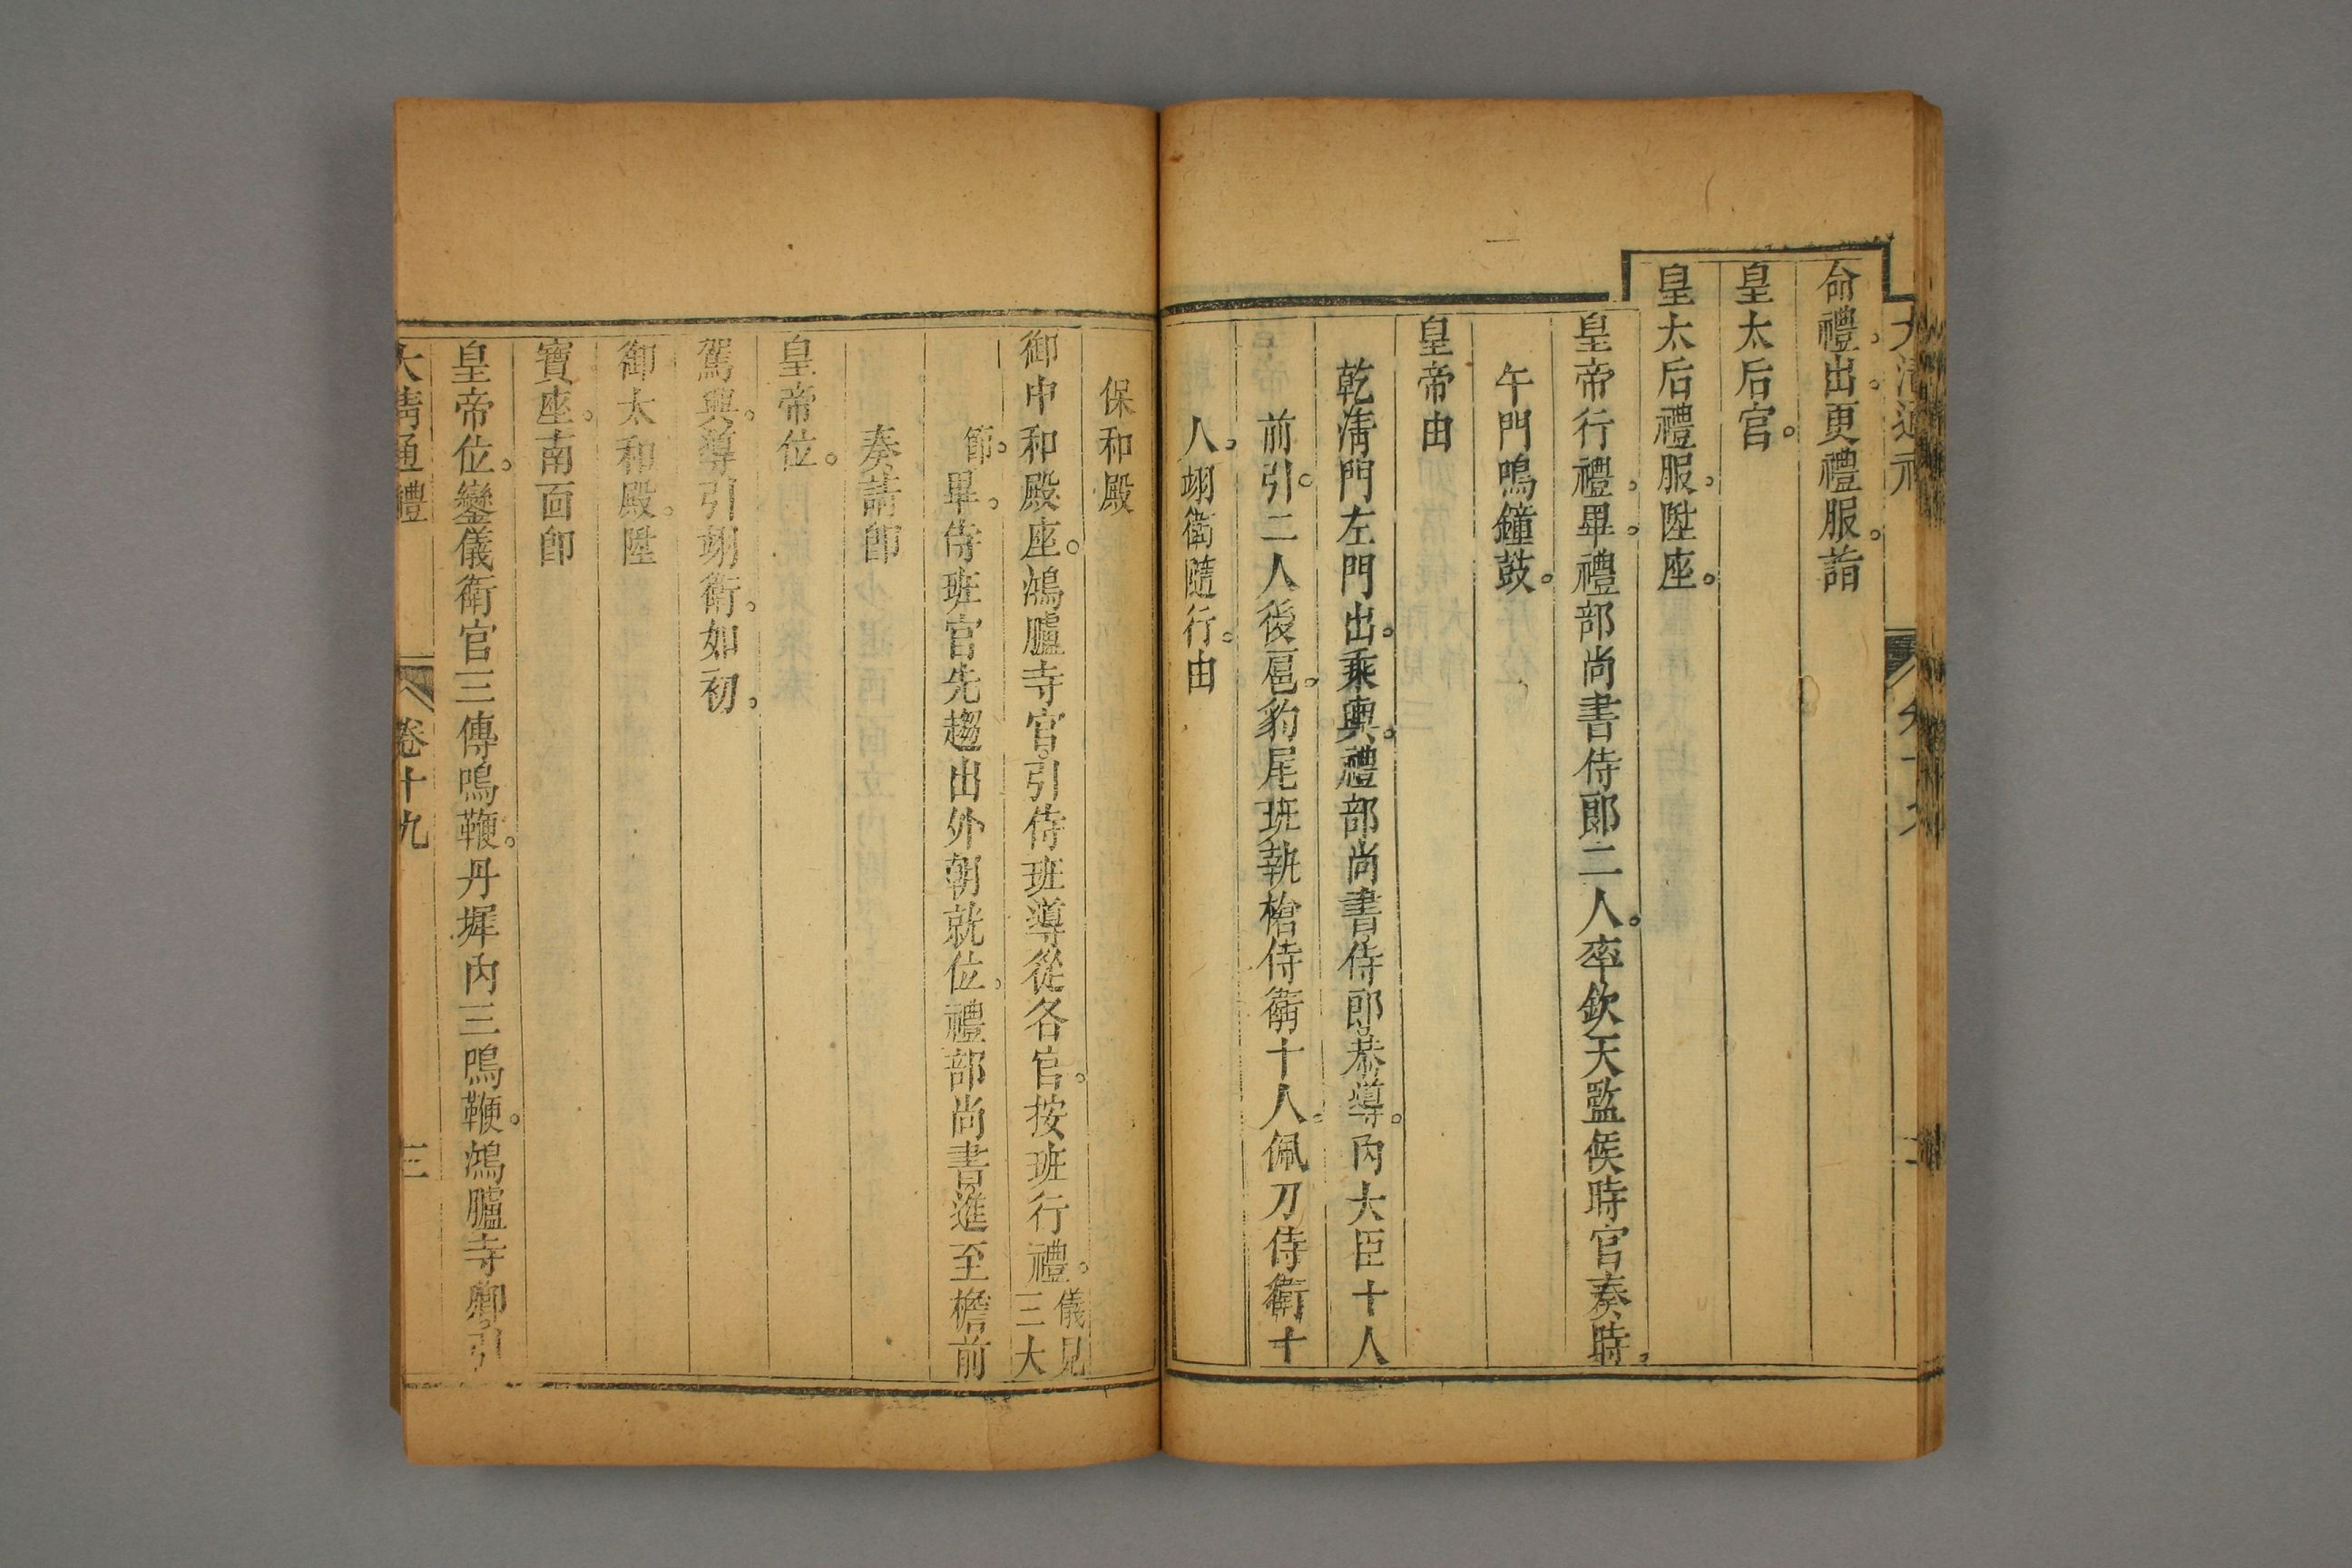 命禮。出。更禮服。詣
皇太后宮。
皇太后禮服。陞座。
皇帝行禮。畢。禮部尚書侍郎二人。率欽天監候時官奏時。
午門鳴鐘鼓。
皇帝由
乾淸門左門出。乘輿。禮部尚書侍郎恭導。內大臣十人
前引。二人後扈。豹尾班執槍侍衞十人。佩刀侍衞十
人。翊衞隨行。由
保和殿
御中和殿座。鴻臚寺官。引侍班導從各官。按班行禮。儀見三大
節。畢。侍班官先趨出外朝就位。禮部尚書進至檐前
奏請卽
皇帝位。
駕興。導引翊衞。如初。
御太和殿。陞
寶座。南面卽
皇帝位。鑾儀衞官三傳鳴鞭。丹墀內三鳴鞭。鴻臚寺卿引
大淸通禮 卷十九 三